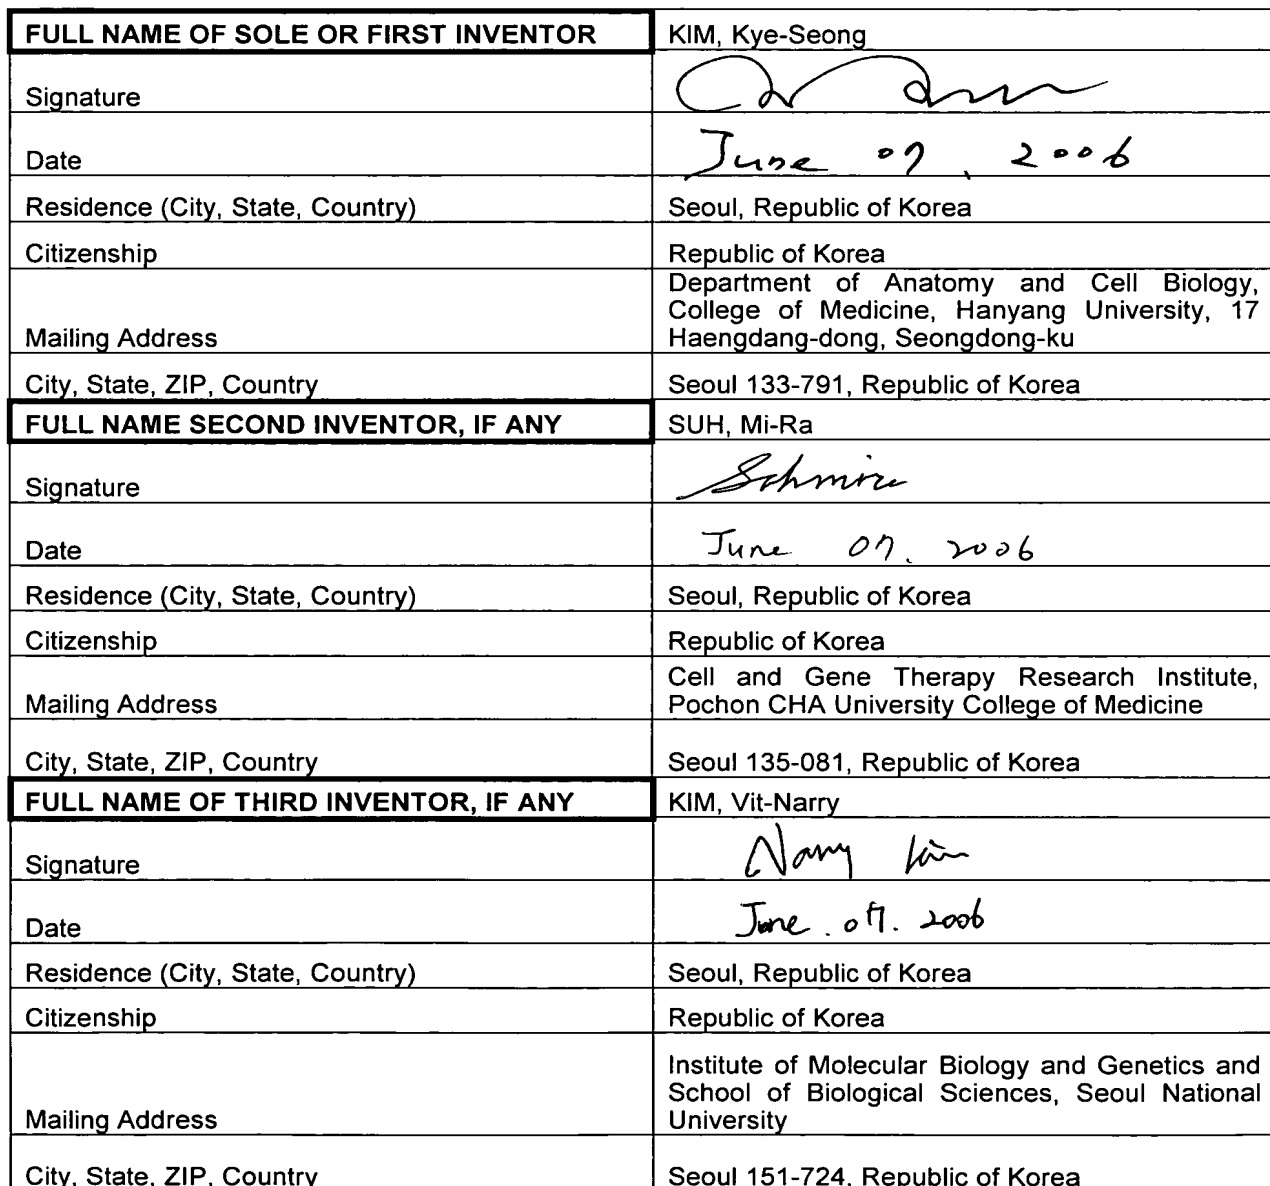 FULL NAME OF SOLE OR FIRST INVENTOR KIM, Kye-Seong
Signature
Date June 07, 2006
Residence (City, State, Country) Seoul, Republic of Korea
Citizenship Republic of Korea
Department of Anatomy and Cell Biology,
College of Medicine, Hanyang University, 17
Mailing Address Haengdang-dong, Seongdong-ku
City, State, ZIP, Country Seoul 133-791, Republic of Korea
FULL NAME SECOND INVENTOR, IF ANY SUH, Mi-Ra
Signature
Date June 07. 2006
Residence (City, State, Country) Seoul, Republic of Korea
Citizenship Republic of Korea
Cell and Gene Therapy Research Institute,
Mailing Address Pochon CHA University College of Medicine
City, State, ZIP, Country Seoul 135-081, Republic of Korea
FULL NAME OF THIRD INVENTOR, IF ANY KIM, Vit-Narry
Signature Narry Kim
Date June . 07. 2006
Residence (City, State, Country) Seoul, Republic of Korea
Citizenship Republic of Korea
Institute of Molecular Biology and Genetics and
School of Biological Sciences, Seoul National
Mailing Address University
City, State, ZIP, Country Seoul 151-724, Republic of Korea